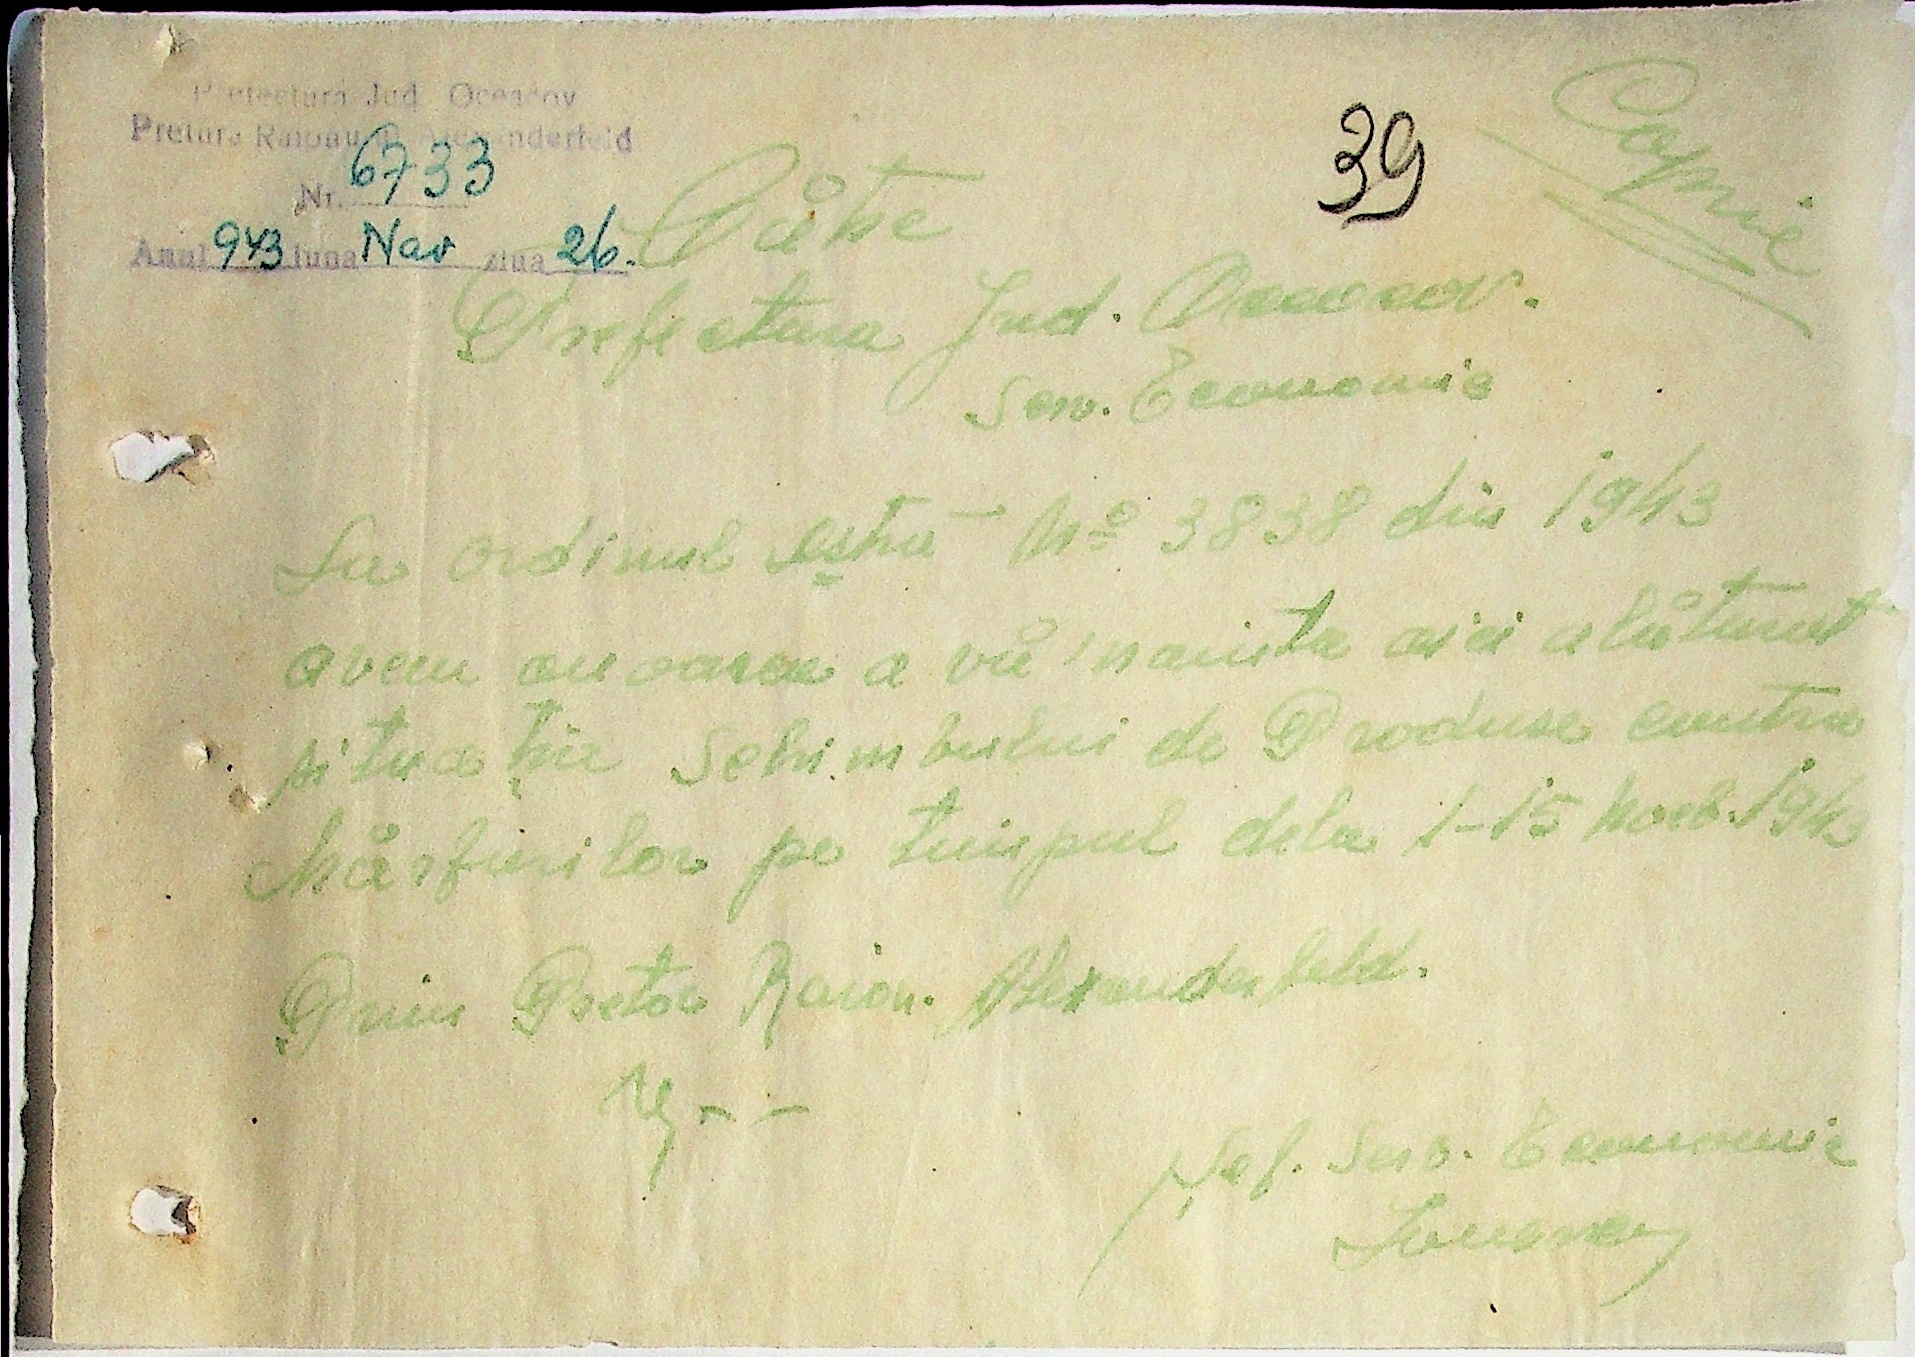 Prefectura Jud. Oceacov
Pretura Raionului Alexanderfeld
Nr. 6733
Anul 943 luna Nov ziua 26.
39
Copie
Către
Prefectura Jud. Oceacov.
Serv. Economic
La ordinul Dstră No 3838 din 1943
avem onoarea a vă înainta aici alăturat
situația Schimbului de Produse contra
Mărfurilor pe timpul dela 1-15 Noeb. 194
Prim Pretor Raion. Alexanderfeld.
Șef. Serv. Economic